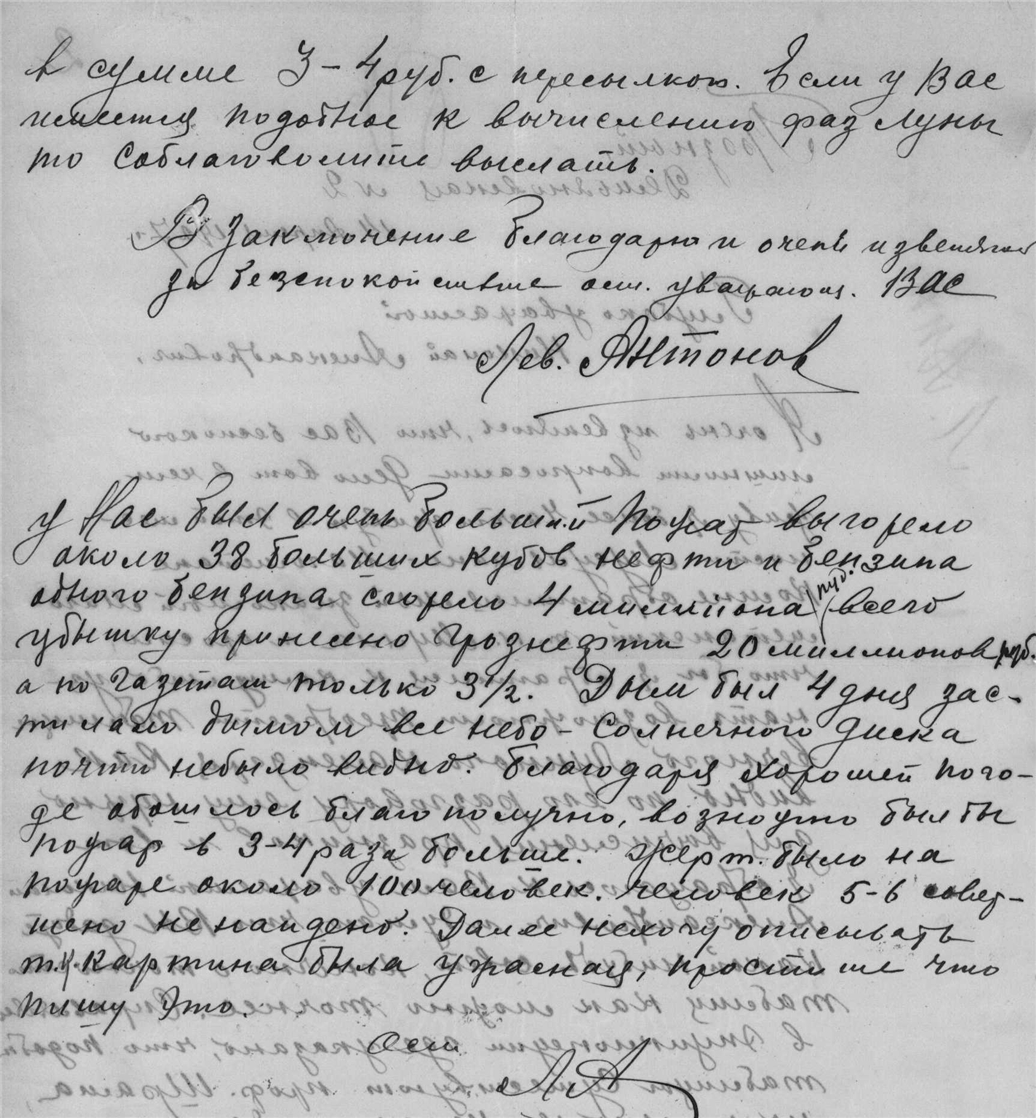 в сумме 3-4 руб. с пересылкою. Если у Вас
имеется подобное к вычислению фаз луны
то соблаговолите выслать.
В заключение благодарю и очень извеняюсь
за безспокойствие ост. уважающ. Вас
Лев. Антонов
у Нас был очень большой пожар выгорело
около 38 больших кубов нефти и бензина
одного бензина сгорело 4 миллиона руб. всего
убытку принесено Грознефти 20 миллионов руб.
а по газетам только 3½. Дым был 4 дня зас-
тилало дымом все небо - солнечного диска
почти небыло видно. Благодаря хорошей пого-
де обошлось благополучно, возможно был бы
пожар в 3-4 раза больше. Жерт. было на
пожаре около 100 человек. человек 5-6 совер-
шено не найдено. Далее нехочу описывать
т.к. картина была ужасная, простите что
пишу это.
Ост
ЛА